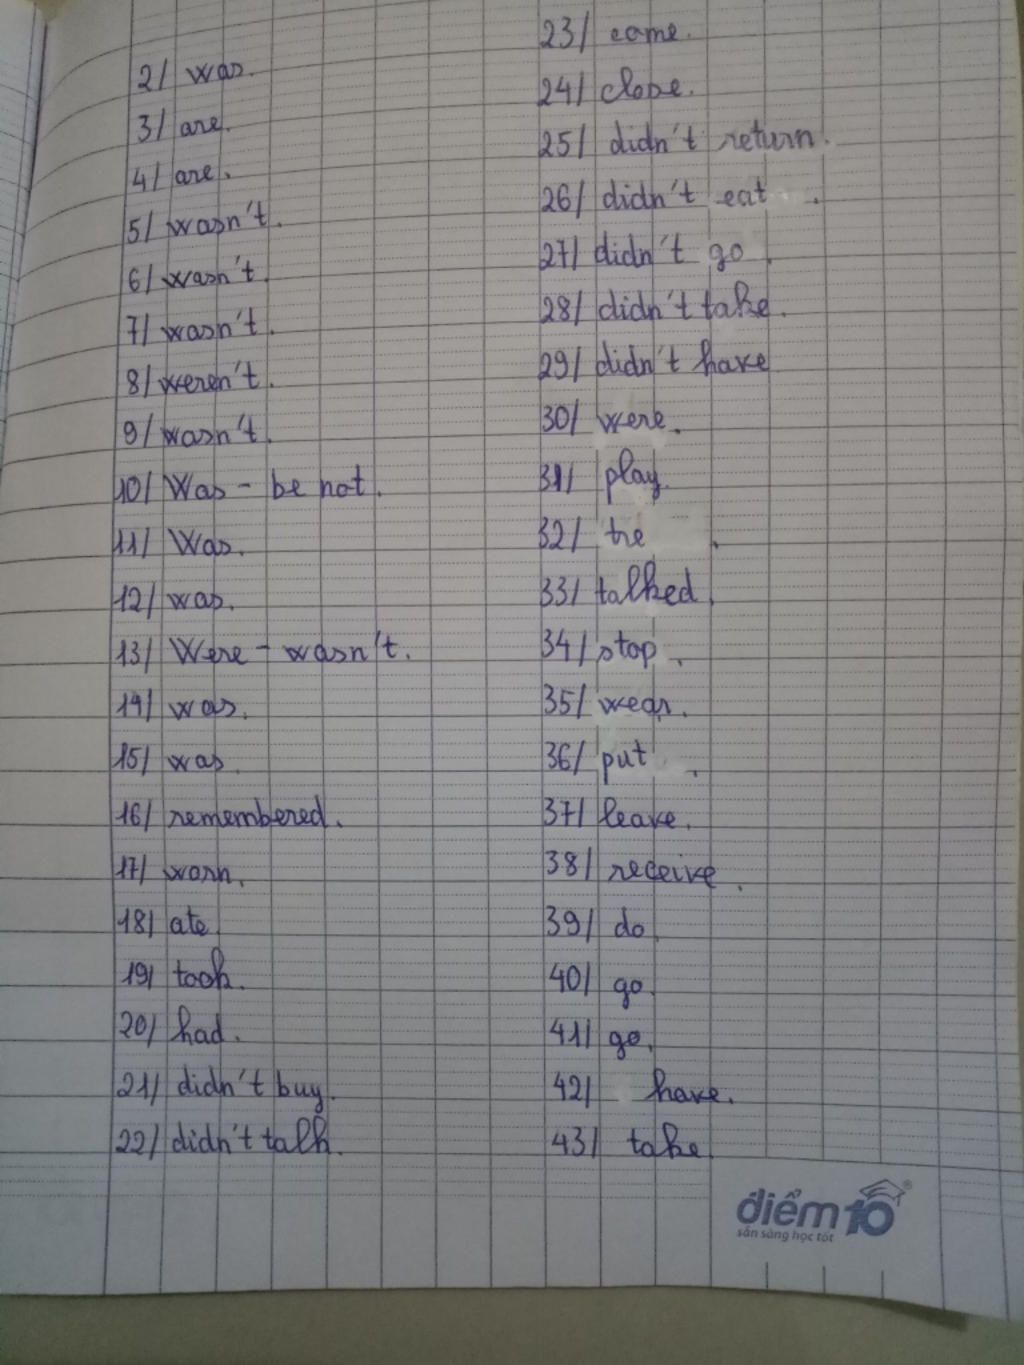 2/ was.
3/ are.
4/ are.
5/ wasn't.
6/ wasn't.
7/ wasn't.
8/ weren't.
9/ wasn't.
10/ Was - be not.
11/ Was.
12/ was.
13/ Were - wasn't.
14/ was.
15/ was.
16/ remembered.
17/ worn.
18/ ate
19/ took.
20/ had.
21/ didn't buy.
22/ didn't talk.
23/ come.
24/ close.
25/ didn't return.
26/ didn't eat .
27/ didn't go .
28/ didn't take.
29/ didn't have
30/ were.
31/ play.
32/ tre .
33/ talked.
34/ stop.
35/ wear.
36/ put .
37/ leave.
38/ receive.
39/ do.
40/ go.
41/ go.
42/ have.
43/ take.
điểm 10
sẵn sàng học tốt